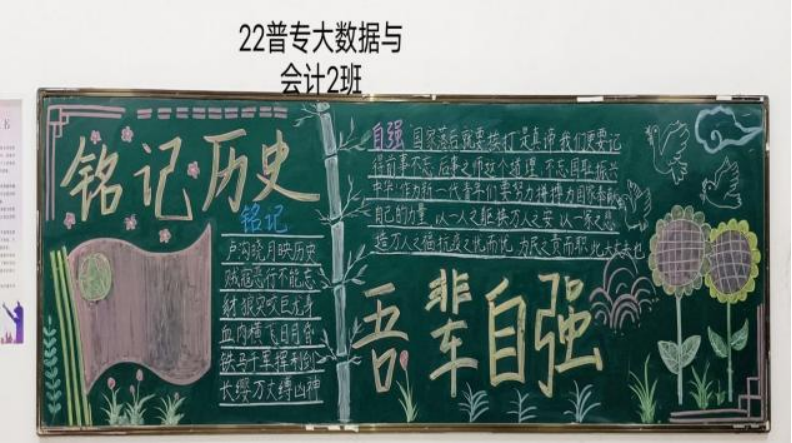 22普专大数据与
会计2班
铭记历史
铭记
卢沟晓月映历史
贼寇恶行不能忘
豺狼突咬巨龙身
血肉横飞日月昏
铁马千军挥利剑
长缨万丈缚凶神
自强 国家落后就要挨打是真谛我们更要记
得前事不忘后事之师这个道理不忘国耻振兴
中华作为新一代青年们要努力拼搏为国家奉献
自己的力量以一人之躯换万人之安以一家之
造万人之福抗 之忧而忧为民之责而职此大丈夫也
吾辈自强